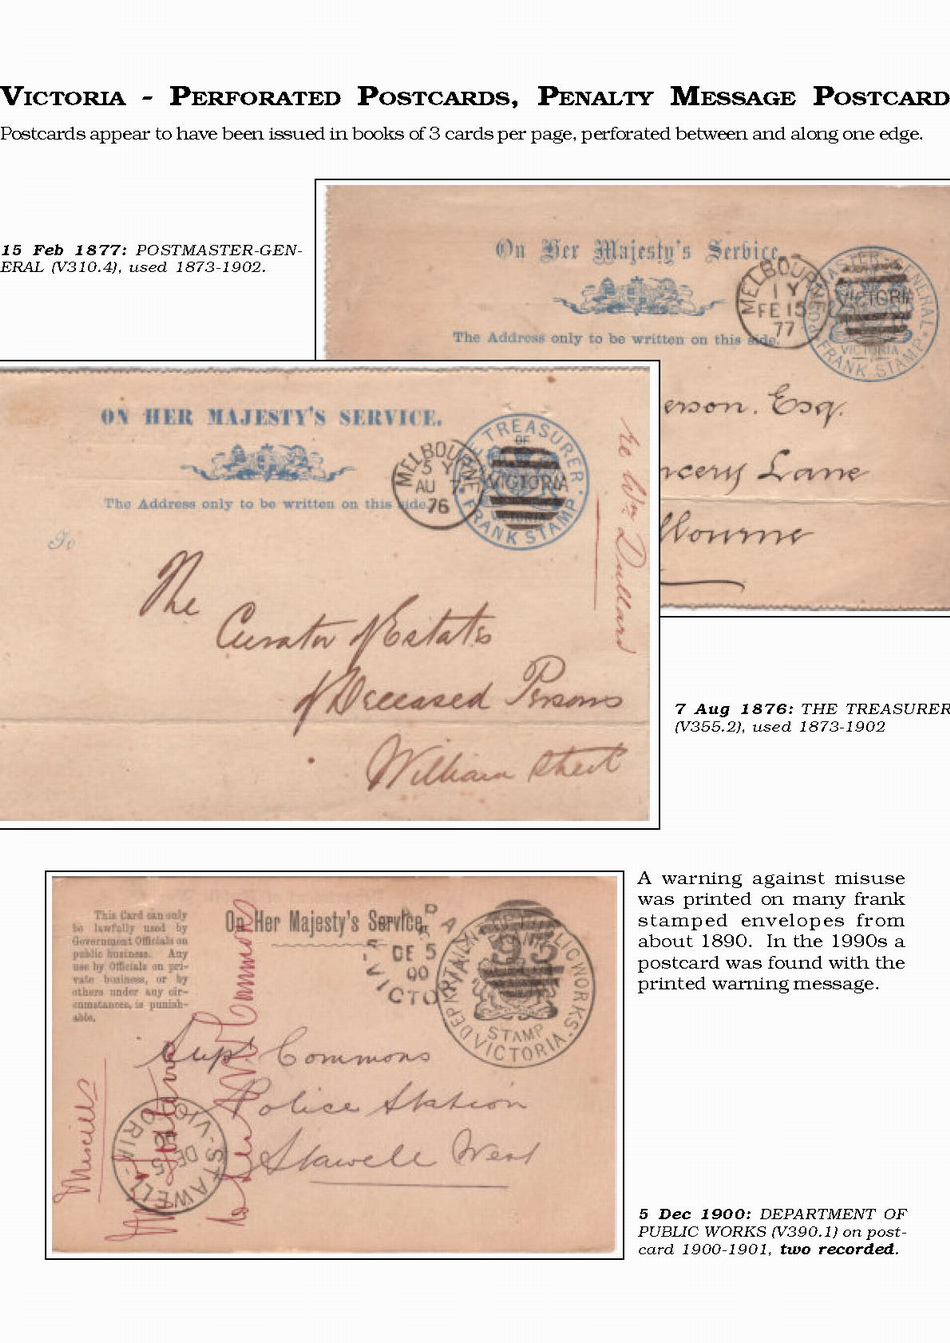 VICTORIA - PERFORATED POSTCARDS, PENALTY MESSAGE POSTCARD
Postcards appear to have been issued in books of 3 cards per page, perforated between and along one edge.
15 Feb 1877: POSTMASTER-GEN-
ERAL (V310.4), used 1873-1902.
On Her Majesty's Service.
The Address only to be written on this side.
MELBOURNE
1 Y
FE 15
77
VICTORIA
FRANK STAMP
erson. Esq.
ncery Lane
lbourne
ON HER MAJESTY'S SERVICE.
The Address only to be written on this side.
MELBOURNE
5 Y
AU 7
76
TREASURER
OF
VICTORIA
FRANK STAMP
To
The
Curator of Estates
of Deceased Persons
William Street
re Wm Dullard
7 Aug 1876: THE TREASURER
(V355.2), used 1873-1902
A warning against misuse
was printed on many frank
stamped envelopes from
about 1890. In the 1990s a
postcard was found with the
printed warning message.
This Card can only
be lawfully used by
Government Officials on
public business. Any
use by Officials on pri-
vate business, or by
others under any cir-
cumstances, is punish-
able.
On Her Majesty's Service.
DE 5
00
VICTO
STAMP
VICTORIA
Supt Commons
Police Station
Stawell West
STAWELL
DE 5
VICTORIA
5 Dec 1900: DEPARTMENT OF
PUBLIC WORKS (V390.1) on post-
card 1900-1901, two recorded.